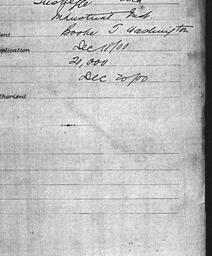 Tuskegee
Industrial Inst
ent Booker T Washington
plication Dec 18/00
21,000
Dec 20/00
thorized